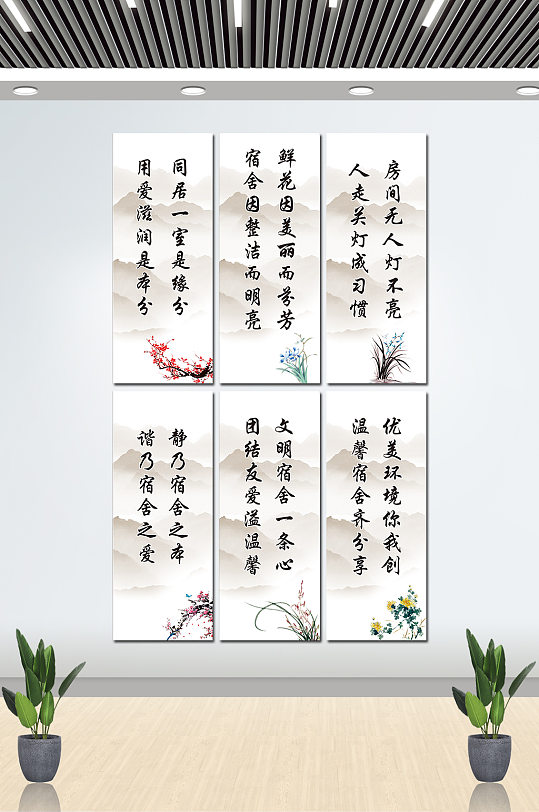 同居一室是缘分
用爱滋润是本分
鲜花因美丽而芬芳
宿舍因整洁而明亮
房间无人灯不亮
人走关灯成习惯
静乃宿舍之本
谐乃宿舍之爱
文明宿舍一条心
团结友爱溢温馨
优美环境你我创
温馨宿舍齐分享